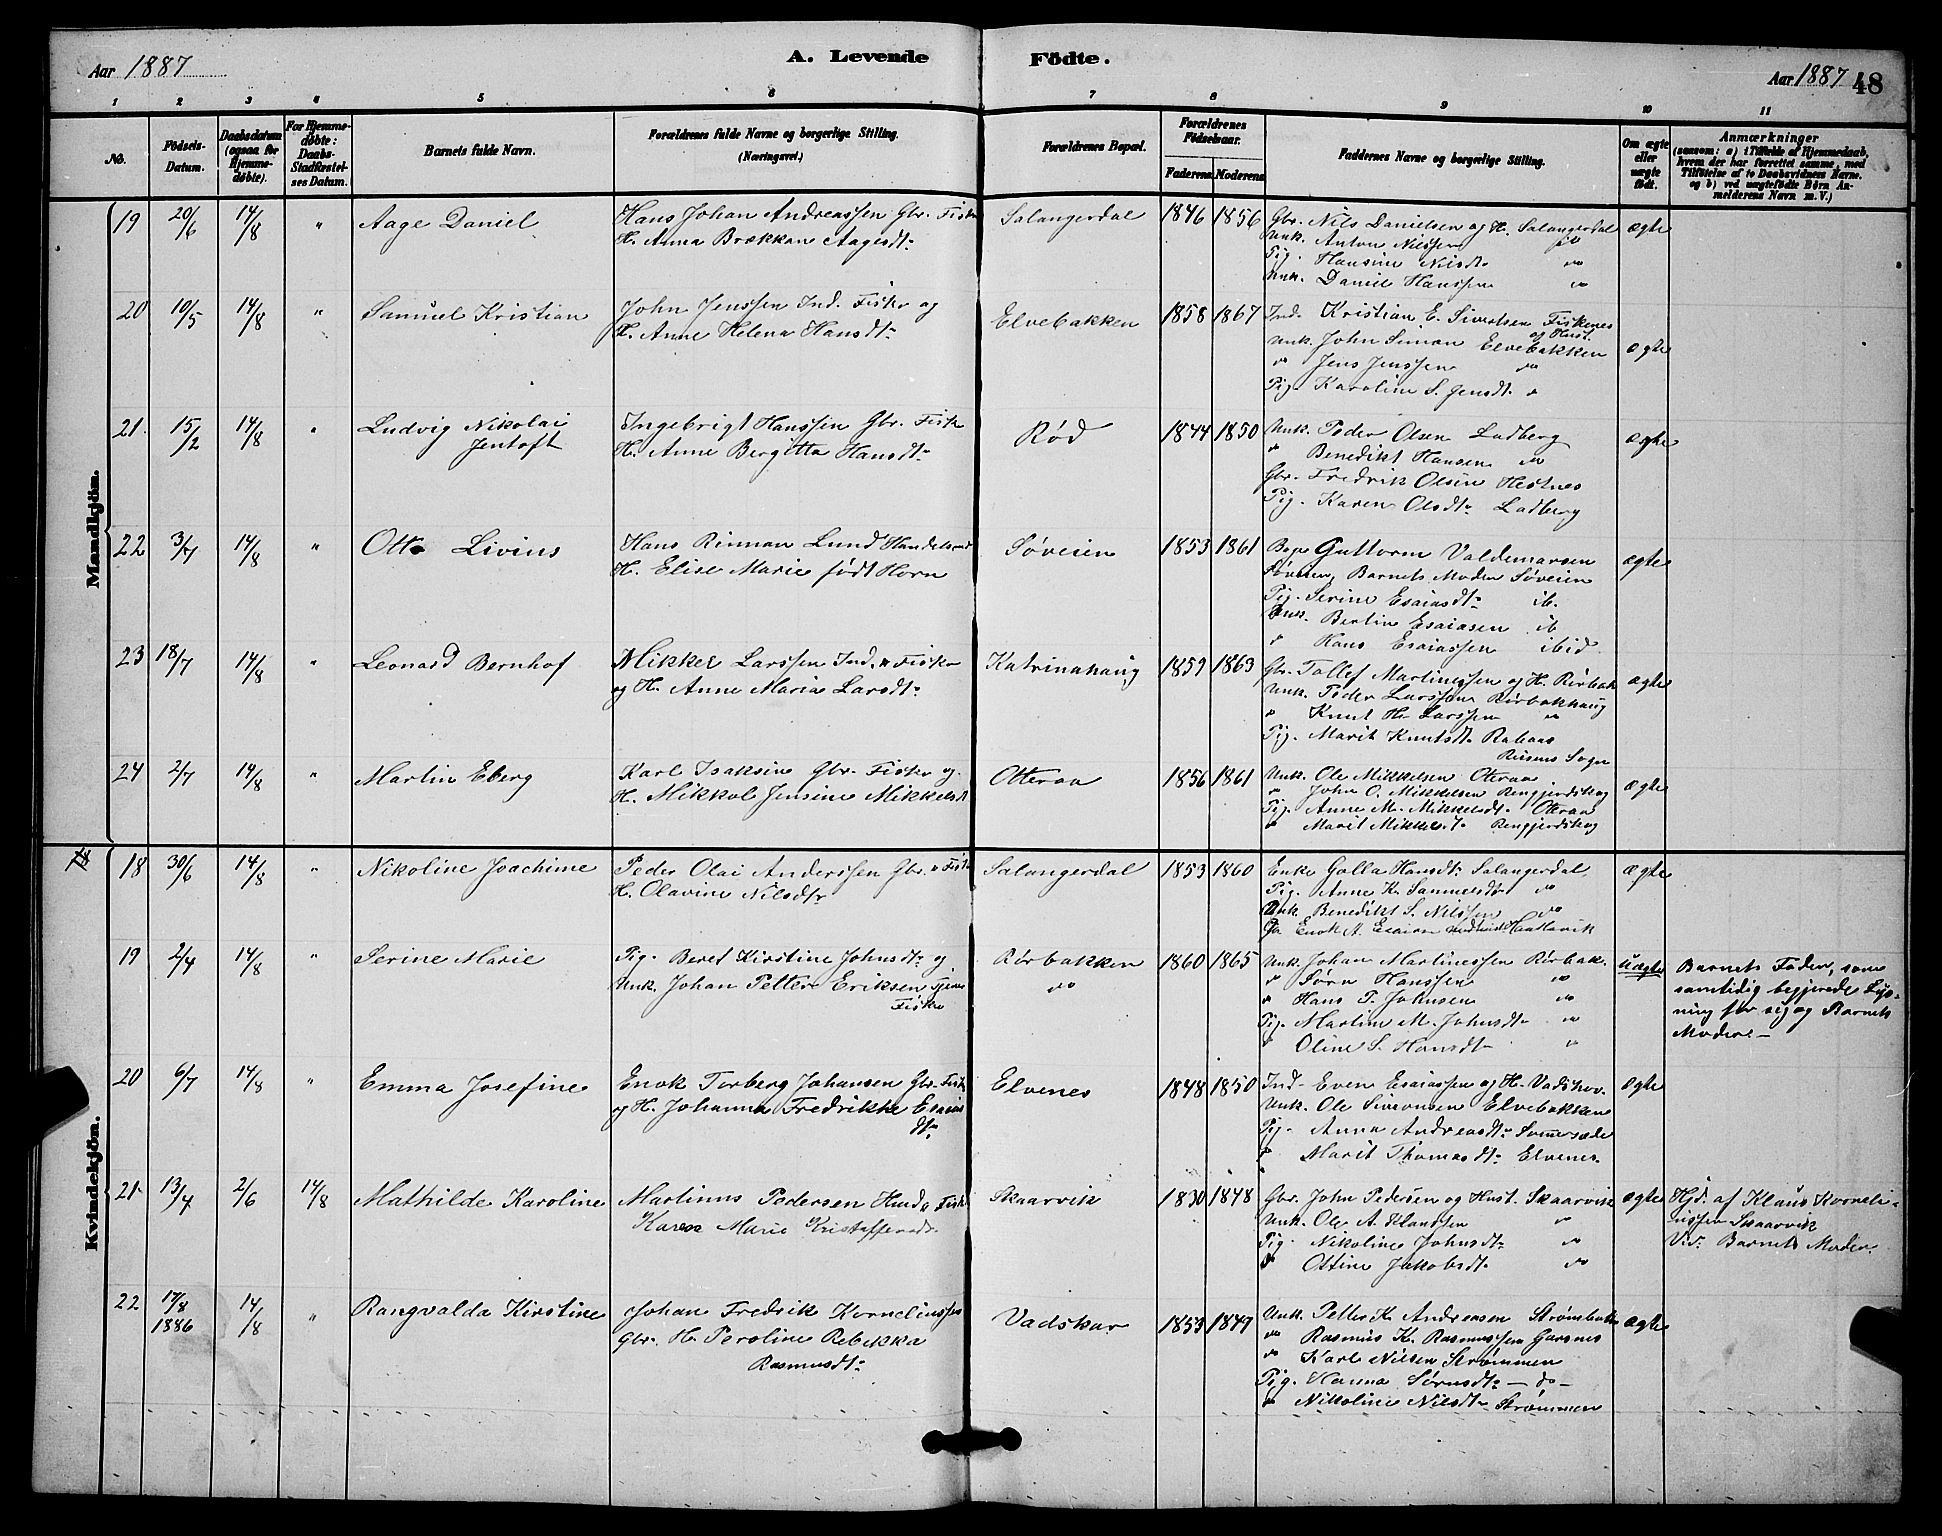 Aar 1887
A. Levende Födte.
Aar 1887 48
1 2 3 4 5 6 7 8 9 10 11
No.
Fødsels-Datum.
Daabsdatum (ogsaa for Hjemme-døbte).
For Hjemme-døbte: Daabs-Stadfæstel-ses Datum.
Barnets fulde Navn.
Forældrenes fulde Navne og borgerlige Stilling. (Næringsvei.)
Forældrenes Bopæl.
Forældrenes Fødselsaar.
Faderens Moderens
Faddernes Navne og borgerlige Stilling.
Om ægte eller uægte født.
Anmærkninger
(saasom: a) i Tilfælde af Hjemmedaab, hvem der har forrettet samme, med Tilføielse af to Daabsvidners Navne. og b) ved uægtefødte Børn An-melderens Navn m. V.)
Mandkjön.
19 20/6 14/8 " Aage Daniel
Hans Johan Andreassen Gbr. Fisk
H. Anna Brækkan Aagesdt.
Salangerdal 1846 1856
Gbr. Nils Danielsen og H. Salangerdal
Unk. Anton Nilssen do
Pig. Hansine Nilsdt. do
Unk. Daniel Hanssen do
ægte
20 10/5 14/8 " Samuel Kristian
John Jenssen Ind. Fisker og
H. Anne Helena Hansdt.
Elvebakken 1858 1867
Ind. Kristian E. Sivertsen Fiskenes
og Hust.
Unk. John Simon Elvebakken
" Jens Jenssen do
Pig. Karoline S. Jensdt. "
ægte
21. 15/2 14/8 " Ludvig Nikolai
Jentoft
Ingebrigt Hanssen Gbr. Fisk
H. Anne Bergitta Hansdt.
Rød 1844 1850
Unk. Peder Olsen Ladberg
" Benedikt Hansen do
Gbr. Fredrik Olsen Hestnes
Pig. Karen Olsdt. Ladberg
ægte
22 3/7 14/8 " Otto Livius
Hans Rinman Lund Handelsmd
H. Elise Marie født Horn
Søveien 1853 1861
Guttorm Valdemarsen
Søveien, Barnets Moder Søveien
Pig. Serine Esaiasdt. ib.
Unk. Bertin Esaiasen ib
" Hans Esaiassen ibid.
ægte
23 18/7 14/8 " Leonard Bernhof
Mikkel Larssen Ind. " Fisker
og H. Anne Maria Larsdt.
Katrinahaug 1859 1863
Gbr. Tollef Martinessen og H. Rørbak
Unk. Peder Larssen Rørbakhaug
" Knut H. Larssen "
Pig. Marit Knutsdt. Rabaas
Sogn
ægte
24 2/7 14/8 " Martin Eberg
Karl Isaksen Gbr. Fisker og
H. Mikkol Jensine Mikkelsdt
Otteraa 1856 1861
Unk. Ole Mikkelsen Oteraa
" John O. Mikkelsen Rengjerdskog
Pig. Anne M. Mikkelsdt. Oteraa
" Marit Mikkelsdt. Rengjerdskog
ægte
Kvindekjön.
18 30/6 14/8 " Nikoline Joachime
Peder Olai Anderssen Gbr. " Fisk
H. Olavine Nilsdt.
Salangerdal 1853 1860
Enke Golla Hansdt. Salangerdal
Pig. Anne K. Samuelsdt do
Unk. Benedikt S. Nilssen do
Enok A. Esaiassen
ægte
19 2/4 14/8 " Serine Marie
Pig. Beret Kirstine Johnsdt. og
Unk. Johan Petter Eriksen Tjener
Fisker
Rørbakken
do
1860 1865
Unk. Johan Martinessen Rørbak.
" Sørn Hanssen do
" Hans P. Johnsen do
Pig. Martine M. Johnsdt. do
" Oline S. Hansdt. "
Uægte
Barnets Fader, som
samtidig begjerede Lys-
ning for sig og Barnets
Moder.—
20 6/7 14/8 " Emma Josefine
Enok Torberg Johansen Gbr. Fisk
og H. Johanna Fredrikke Esaias
dt.
Elvenes 1848 1850
Ind. Even Esaiassen og H. Vadskor.
Unk. Ole Siversen Elvebakken
Pig. Anna Andreasdt. Sommersæde
" Marit Thomasdt. Elvenes
ægte
21. 13/4 2/6 14/8 Mathilde Karoline
Martinus Pedersen Fisk
Karen Marie Kristoffersdt.
Skaarvik 1830 1848
Gbr. John Pedersen og Hust. Skaarvik
Unk. Ole A. Klaussen "
Pig. Nikoline Johnsdt. do
" Ottine Jakobsdt. do
ægte
Hjd. af Klaus Korneli-
ussen Skaarvik
Vid. Barnets Moder.
22 17/8 14/8 " Rangvalda Kirstine
1886
Johan Fredrik Korneliussen
Gbr. H. Peroline Rebekka
Rasmusdt.
Vadskar 1853 1849
Unk. Petter K. Andreasen Strømbotn
" Rasmus K. Rasmussen Gaasnes
" Karl Nilsen Strømmen
Pig. Hanna Sørnsdt. — do —
" Nikoline Nilsdt. Strømmen
ægte